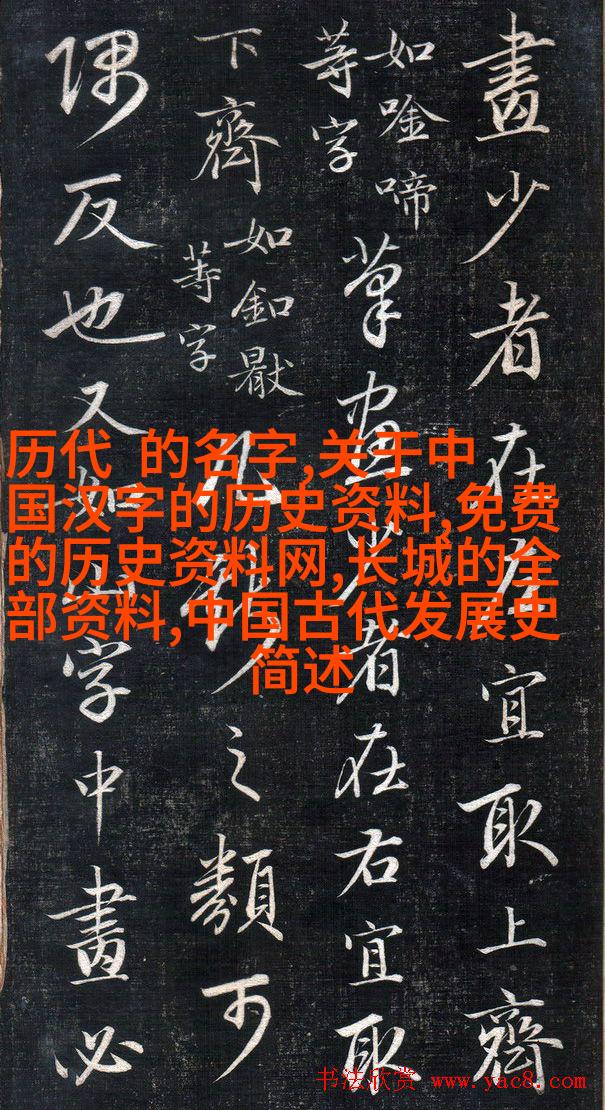 畫少者在左宜取上齊
如唫啼
等字
筆畫少者在右宜取
下齊
如釦
等字
之類可
隅反也又如山字中畫必
历代 的名字,关于中
国汉字的历史资料,免费
的历史资料网,长城的全
部资料,中国古代发展史
简述
书法欣赏 www.yac8.com